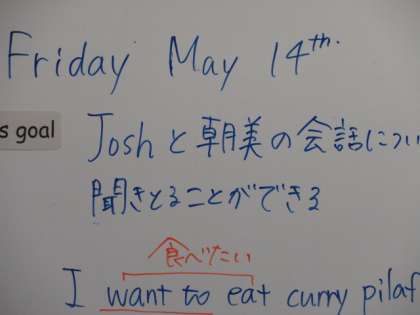 Friday May 14th.
s goal
Joshと朝美の会話につい
聞きとることができる
食べたい
I want to eat curry pilaf